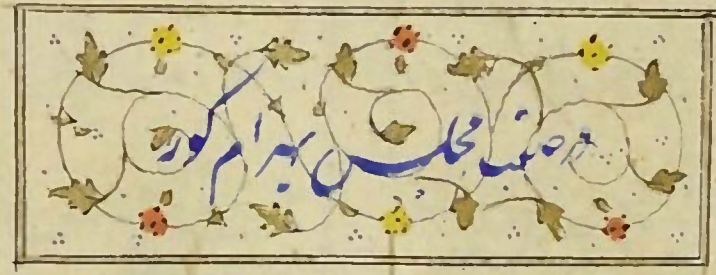 در صفت مجلس بهرام کور